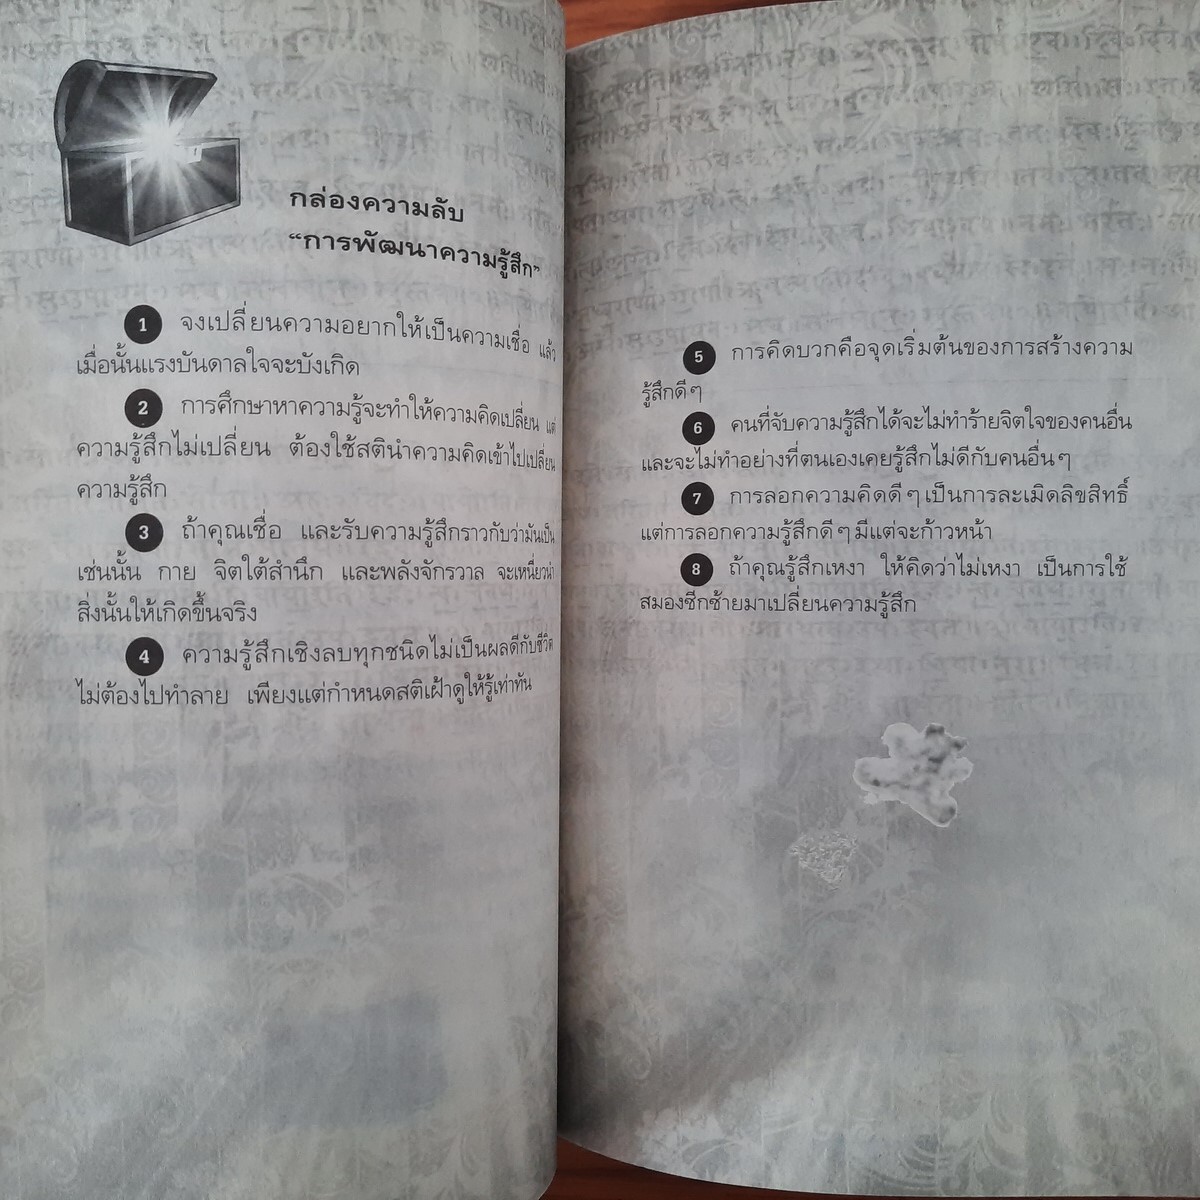 กล่องความลับ
“การพัฒนาความรู้สึก”
1 จงเปลี่ยนความอยากให้เป็นความเชื่อ แล้ว
เมื่อนั้นแรงบันดาลใจจะบังเกิด
2 การศึกษาหาความรู้จะทำให้ความคิดเปลี่ยน แต่
ความรู้สึกไม่เปลี่ยน ต้องใช้สตินำความคิดเข้าไปเปลี่ยน
ความรู้สึก
3 ถ้าคุณเชื่อ และรับความรู้สึกราวกับว่ามันเป็น
เช่นนั้น กาย จิตใต้สำนึก และพลังจักรวาล จะเหนี่ยวนำ
สิ่งนั้นให้เกิดขึ้นจริง
4 ความรู้สึกเชิงลบทุกชนิดไม่เป็นผลดีกับชีวิต
ไม่ต้องไปทำลาย เพียงแต่กำหนดสติเฝ้าดูให้รู้เท่าทัน
5 การคิดบวกคือจุดเริ่มต้นของการสร้างความ
รู้สึกดีๆ
6 คนที่จับความรู้สึกได้จะไม่ทำร้ายจิตใจของคนอื่น
และจะไม่ทำอย่างที่ตนเองเคยรู้สึกไม่ดีกับคนอื่นๆ
7 การลอกความคิดดีๆ เป็นการละเมิดลิขสิทธิ์
แต่การลอกความรู้สึกดีๆ มีแต่จะก้าวหน้า
8 ถ้าคุณรู้สึกเหงา ให้คิดว่าไม่เหงา เป็นการใช้
สมองซีกซ้ายมาเปลี่ยนความรู้สึก